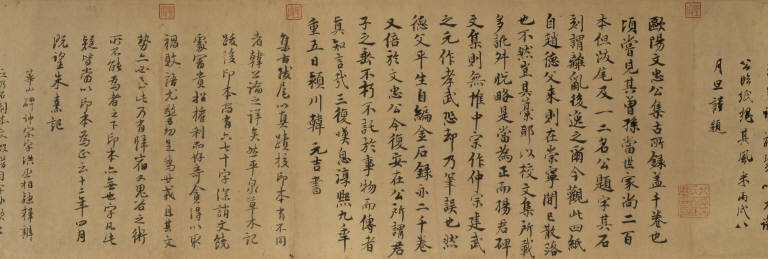 公臨紙想其風采丙戌八
月旦謹題
歐陽文忠公集古所錄蓋千卷也
頃嘗見其曾孫當世家尚二百
本但跋尾及一二名公題字其石
刻謂離亂後逸之爾今觀此四紙
自趙德父來則在崇寧間已散落
也不然豈其藁耶以校文集所載
多訛舛脫略是當為正而楊君碑
文集則無惟中宗作仲宗建武
之元作孝武恐却乃筆誤也然
德父平生自編金石錄亦二千卷
又倍於文忠公今復安在公所謂君
子之垂不朽不託於事物而傳者
真知言哉三復嘆息淳熙九年
重五日潁川韓元吉書
集古跋尾以真蹟校印本有不同
者韓公論之詳矣然平泉草木記
跋後印本尚有六七十字深誚文饒
處富貴招權利而好奇貪得以取
禍敗語尤警切足為世戒且其文
勢亦必至此乃有歸宿又鬼谷之術
所不能為者之下印本亦無也字凡此
疑皆當以印本為正云十二年四月
既望朱熹記
華山碑仲宗字洪丞相隸釋辨